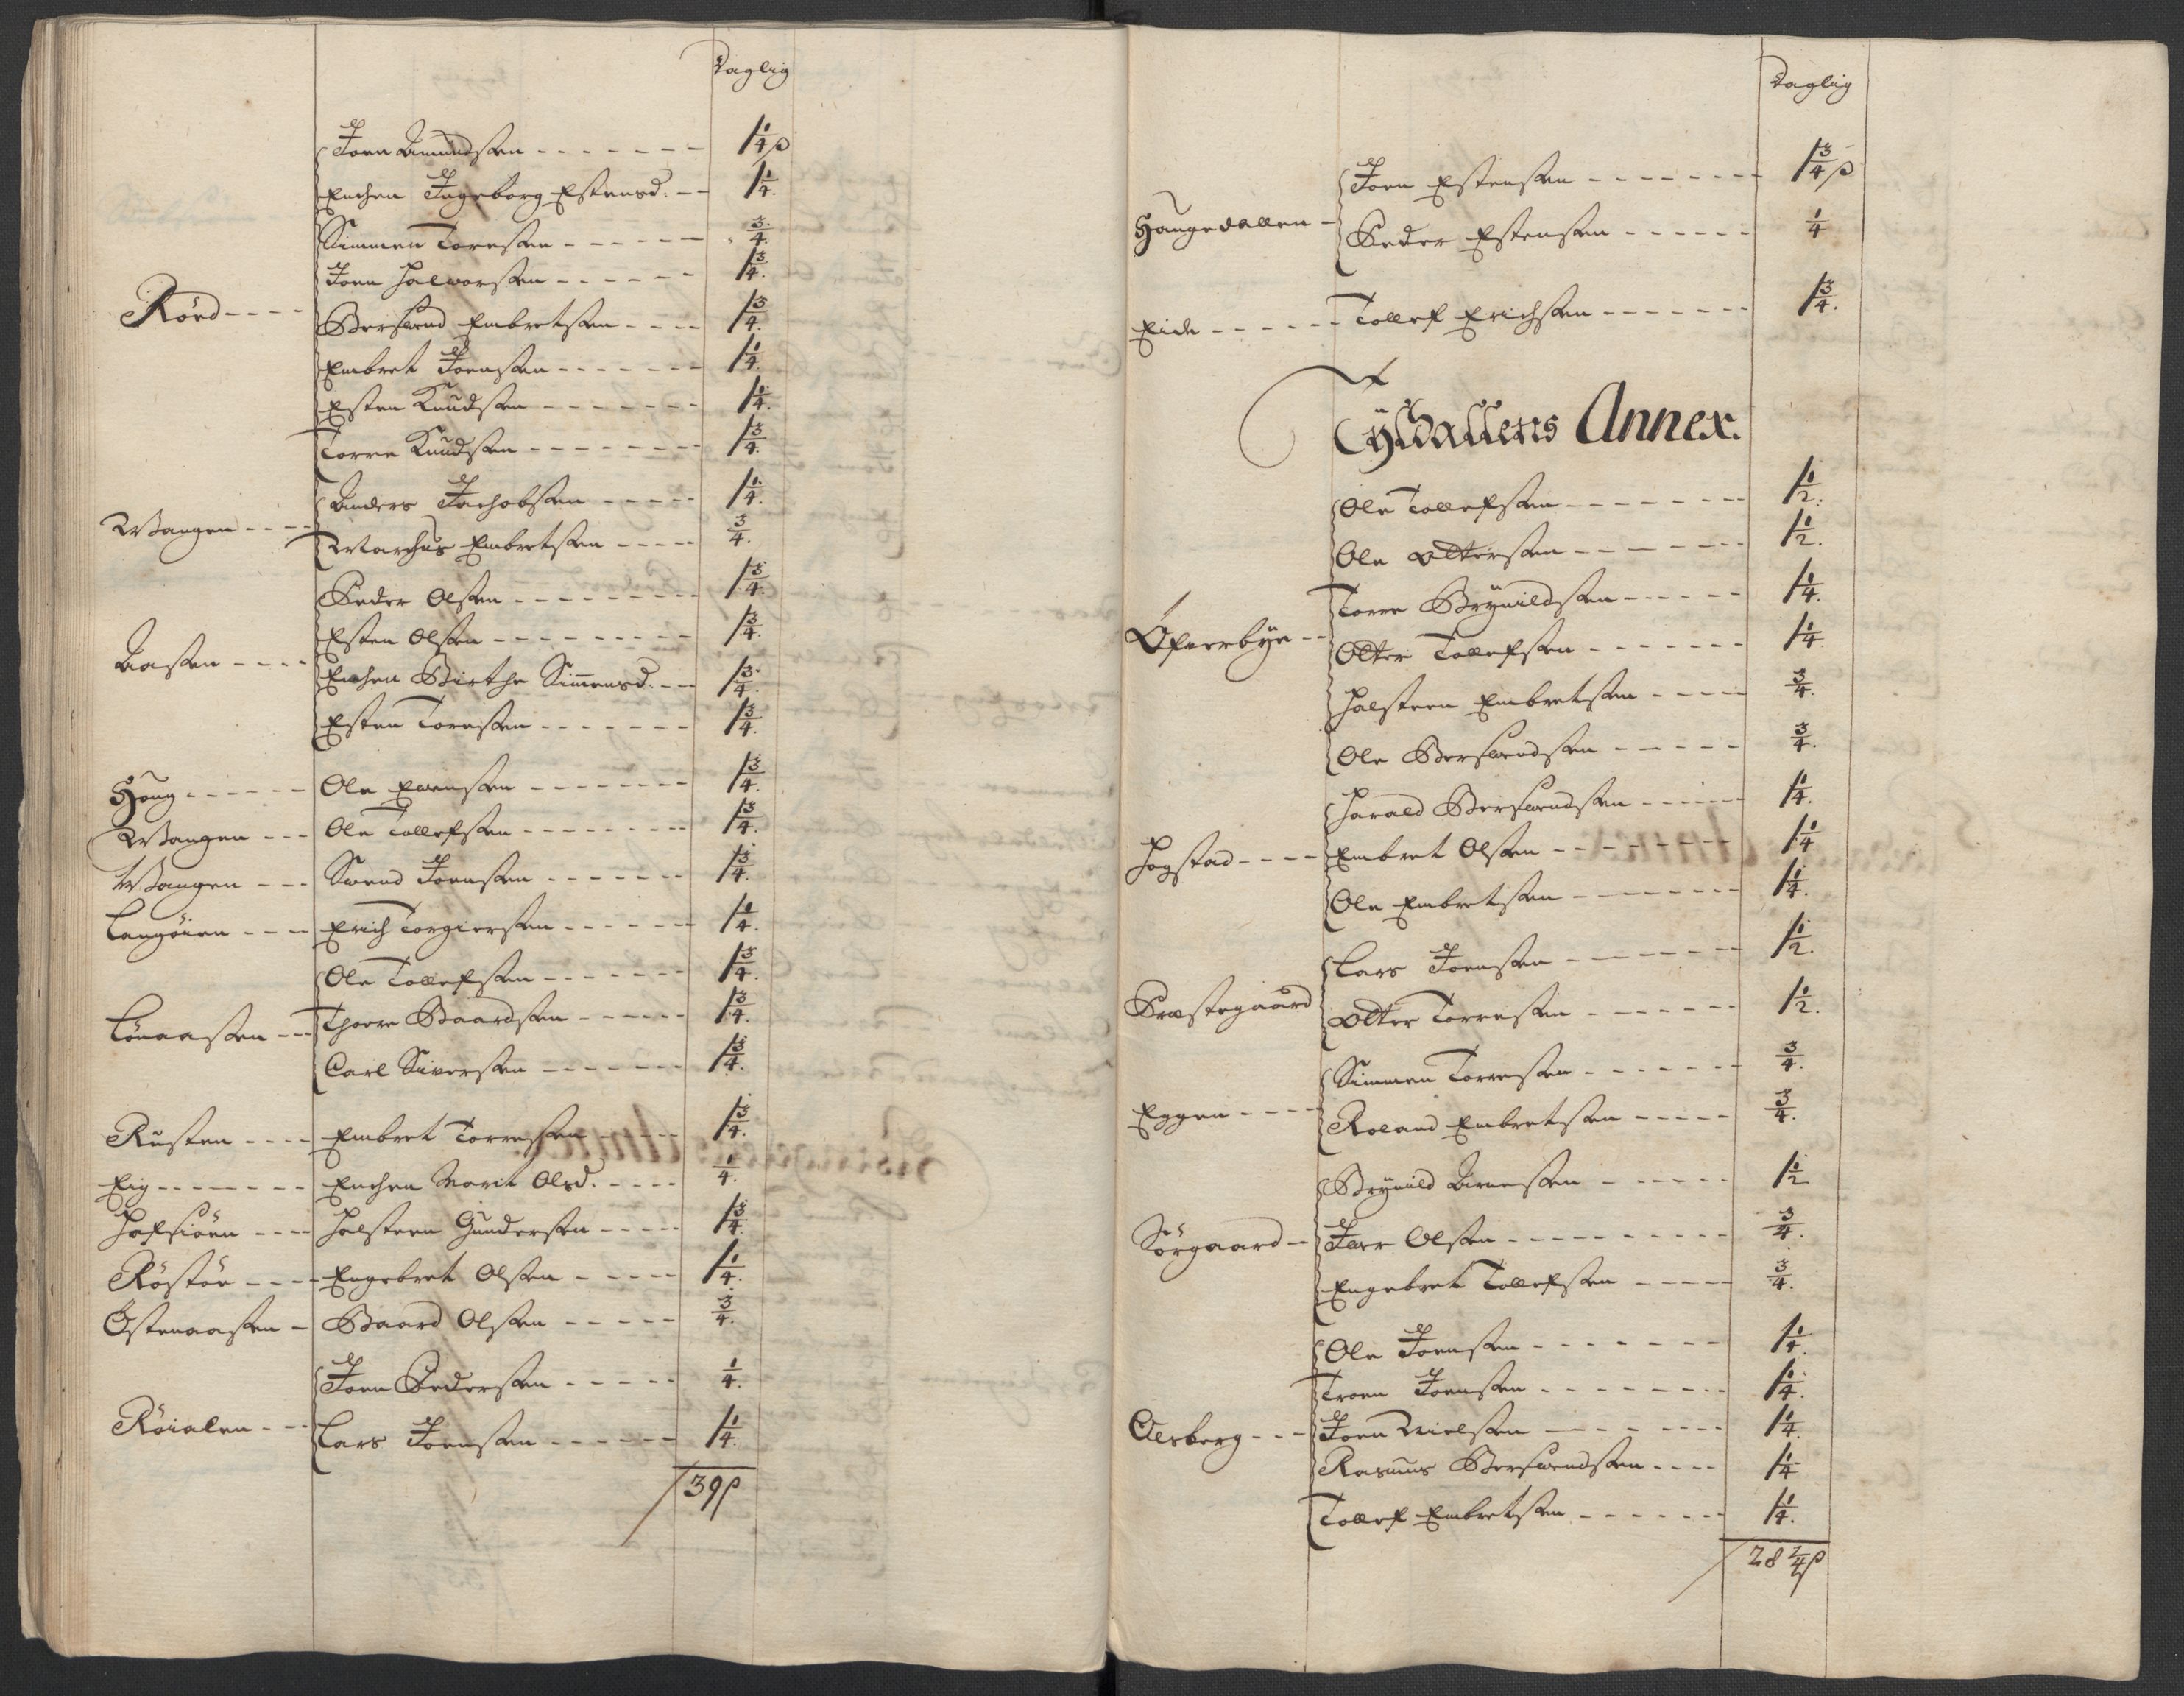 Daglig
Joen Amundsen - - - - - - - 1 1/4 ß
Enchen Ingeborg Estensd: - - 1 1/4.
Simmen Toresen - - - - - - 3/4.
Joen Halvorsen - - - - - - 1 3/4.
Rörd - - - - Bersvend Embretsen - - - - 1 3/4.
Embret Joensen - - - - - - - 1 1/4.
Esten Knudsen - - - - - - - 1 1/4.
Torre Knudsen - - - - - - - 1 3/4.
Anders Jachobsen - - - - - 1 1/4.
Wangen - - - -
Marchus Embretsen - - - - - 3/4.
Peder Olsen - - - - - - - - - 1 3/4.
Esten Olsen - - - - - - - - - 1 3/4.
Aasen - - - -
Enchen Birthe Simensd. - - 1 3/4.
Esten Toresen - - - - - - - 1 3/4.
Houg - - - - - - Ole Evensen - - - - - - - - 1 3/4.
Wangen - - - Ole Tollefsen - - - - - - - - 1 3/4.
Wangen - - - Svend Joensen - - - - - - - 1 3/4.
Langöien - - - Erich Torgiersen - - - - - - 1 1/4.
Ole Tollefsen - - - - - - - 1 3/4.
Lönaasen - - - Thorre Baardsen - - - - - - 1 3/4.
Carl Siversen - - - - - - - 1 3/4.
Rusten - - - - Embret Torresen - - - 1 3/4.
Eig - - - - - - - Enchen Marit Olsd. - - - - 1/4.
Hafsiöen - - - Halsteen Gundersen - - - - - 1 3/4.
Röstöe - - - - Engebret Olsen - - - - - 1 1/4.
Östenaasen - Baard Olsen - - - - - 3/4.
Joen Pedersen - - - - - 1/4.
Röialen - - - Lars Joensen - - - - - - 1 1/4.
39 ß
Daglig
Joen Estensen - - - - - - - - 1 3/4 ß
Hougedallen -
Peder Estensen - - - - - - 1/4
Eide - - - - - - Tollef Erichsen - - - - - - - 1 3/4.
Tyldallens Annex.
Ole Tollefsen - - - - - - - 1 1/2.
Ole Oltersen - - - - - - - 1 1/2.
Torre Brynildsen - - - - - 1 1/4.
Öfverbye - - Olter Tollefsen - - - - - - - 1 1/4.
Halsteen Embretsen - - - - 3/4.
Ole Bersvendsen - - - - - 3/4.
Harald Bersvendsen - - - - - 1 1/4.
Hogstad - - - - Embret Olsen - - - - - - - 1 1/4
Ole Embretsen - - - - - - - 1 1/4.
Lars Joensen - - - - - - - 1 1/2.
Præstegaard Olter Torresen - - - - - - 1 1/2.
Simmen Torresen - - - - - - 3/4.
Eggen - - - -
Roland Embretsen - - - - - 3/4.
Brynild Arnesen - - - - - 1 1/2
Sörgaard - Iver Olsen - - - - - - - - - 3/4.
Engebret Tollefsen - - - - - 3/4.
Ole Joensen - - - - - - - 1 1/4.
Troen Joensen - - - - - - - 1 1/4.
Joen Nielsen - - - - - - - 1 1/4.
Rasmus Bersvendsen - - - - 1 1/4
Tollef Embretsen - - - - - - 1 1/4.
28 2/4 ß